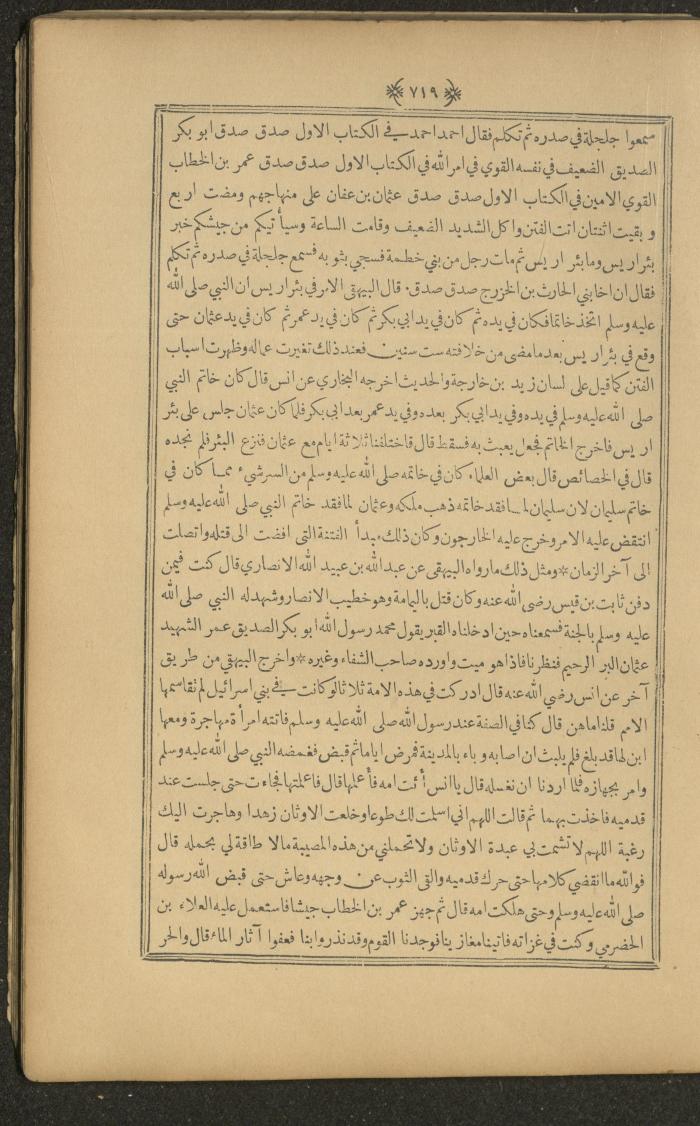 ﴿٧١٩﴾
سمعوا جلجلة في صدره ثم تكلم فقال احمد احمد في الكتاب الاول صدق صدق ابو بكر
الصديق الضعيف في نفسه القوي في امر الله في الكتاب الاول صدق صدق عمر بن الخطاب
القوي الامين في الكتاب الاول صدق صدق عثمان بن عفان على منهاجهم ومضت اربع
و بقيت اثنتان اتت الفتن واكل الشديد الضعيف وقامت الساعة وسيأتيكم من جيشكم خبر
بئر اريس وما بئر اريس ثم مات رجل من بني خطمة فسجي بثوبه فسمع جلجلة في صدره ثم تكلم
فقال ان اخا بني الحارث بن الخزرج صدق صدق. قال البيهقي الامر في بئر اريس ان النبي صلى الله
عليه وسلم اتخذ خاتما فكان في يده ثم كان في يد ابي بكر ثم كان في يد عمر ثم كان في يد عثمان حتى
وقع في بئر اريس بعد ما مضى من خلافته ست سنين فعند ذلك تغيرت عماله وظهرت اسباب
الفتن كما قيل على لسان زيد بن خارجة والحديث اخرجه البخاري عن انس قال كان خاتم النبي
صلى الله عليه وسلم في يده وفي يد ابي بكر بعده وفي يد عمر بعد ابي بكر فلما كان عثمان جلس على بئر
اريس فاخرج الخاتم فجعل يعبث به فسقط قال فاختلفنا ثلاثة ايام مع عثمان فنزع البئر فلم نجده
قال في الخصائص قال بعض العلماء كان في خاتمه صلى الله عليه وسلم من السر شيء مما كان في
خاتم سليمان لان سليمان لما فقد خاتمه ذهب ملكه وعثمان لما فقد خاتم النبي صلى الله عليه وسلم
انتقض عليه الامر وخرج عليه الخارجون وكان ذلك مبدأ الفتنة التى افضت الى قتله واتصلت
الى آخر الزمان * ومثل ذلك ما رواه البيهقى عن عبد الله بن عبيد الله الانصاري قال كنت فيمن
دفن ثابت بن قيس رضى الله عنه وكان قتل باليمامة وهو خطيب الانصار وشهد له النبي صلى الله
عليه وسلم بالجنة فسمعناه حين ادخلناه القبر يقول محمد رسول الله ابو بكر الصديق عمر الشهيد
عثمان البر الرحيم فنظرنا فاذا هو ميت واورده صاحب الشفاء وغيره * واخرج البيهقي من طريق
آخر عن انس رضي الله عنه قال ادركت في هذه الامة ثلاثا لو كانت في بني اسرائيل لم تقاسمها
الامم قلنا ما هن قال كنا في الصفة عند رسول الله صلى الله عليه وسلم فاتته امرأة مهاجرة ومعها
ابن لها قد بلغ فلم يلبث ان اصابه وباء بالمدينة فمرض اياما ثم قبض فغمضه النبي صلى الله عليه وسلم
وامر بجهازه فلما اردنا ان نغسله قال يا انس أئت امه فأعلمها قال فاعلمتها فجاءت حتى جلست عند
قدميه فاخذت بهما ثم قالت اللهم اني اسلمت لك طوعا وخلعت الاوثان زهدا وهاجرت اليك
رغبة اللهم لا تشمت بي عبدة الاوثان ولا تحملني من هذه المصيبة ما لا طاقة لي بحمله قال
فوالله ما انقضي كلامها حتى حرك قدميه والقى الثوب عن وجهه وعاش حتى قبض الله رسوله
صلى الله عليه وسلم وحتى هلكت امه قال ثم جهز عمر بن الخطاب جيشا فاستعمل عليه العلاء بن
الحضرمي وكنت في غزاته فاتينا مغازينا فوجدنا القوم وقد نذروا بنا فعفوا آثار الماء قال والحر